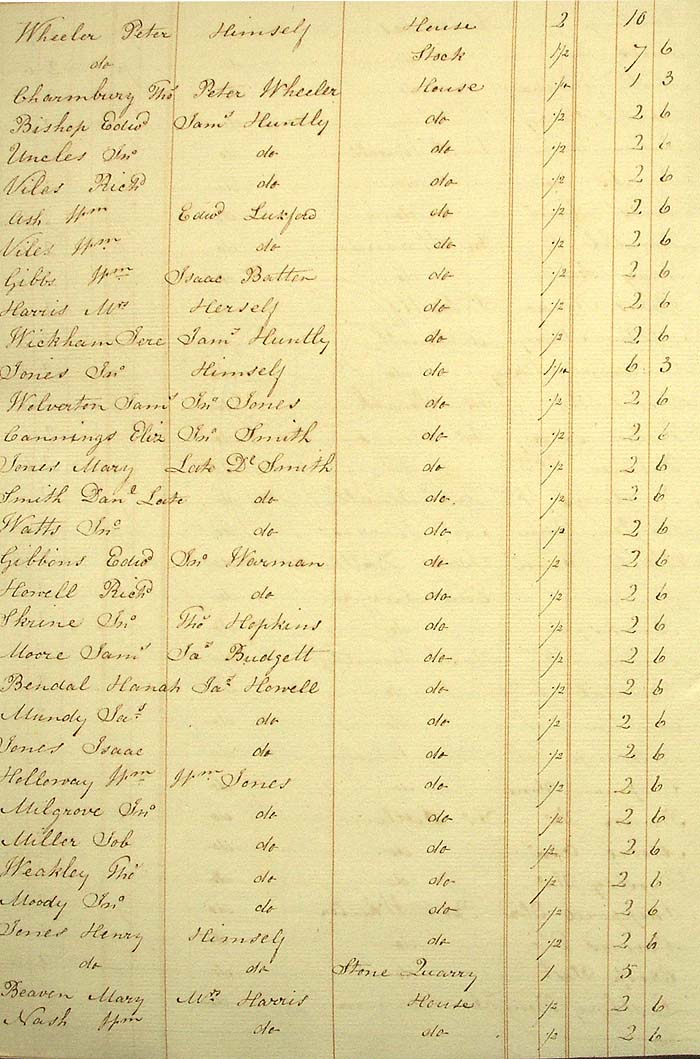 Wheeler Peter Himself House 2 10
do Stock 1½ 7 6
Charmbury Thos Peter Wheeler House ¼ 1 3
Bishop Edwd Saml Huntly do ½ 2 6
Uncles Jno do do ½ 2 6
Viles Richd do do ½ 2 6
Ash Wm Edwd Luxford do ½ 2 6
Viles Wm do do ½ 2 6
Gibbs Wm Isaac Batten do ½ 2 6
Harris Mrs Herself do ½ 2 6
Wickham Jere Saml Huntly do ½ 2 6
Jones Jno Himself do 1¼ 6 3
Wolverton Saml Jno Jones do ½ 2 6
Cannings Eliz Jno Smith do ½ 2 6
Jones Mary Late Dl Smith do ½ 2 6
Smith Danl Late do do ½ 2 6
Watts Jno do do ½ 2 6
Gibbons Edwd Jno Warman do ½ 2 6
Howell Richd do do ½ 2 6
Skrine Jno Thos Hopkins do ½ 2 6
Moore Saml Jas Budgett do ½ 2 6
Bendal Hanah Jas Howell do ½ 2 6
Mundy Jas do do ½ 2 6
Jones Isaac do do ½ 2 6
Holloway Wm Wm Jones do ½ 2 6
Milgrove Jno do do ½ 2 6
Miller Job do do ½ 2 6
Weakley Thos do do ½ 2 6
Moody Jno do do ½ 2 6
Jones Henry Himself do ½ 2 6
do do Stone Quarry 1 5
Beaven Mary Mrs Harris House ½ 2 6
Nash Wm do do ½ 2 6